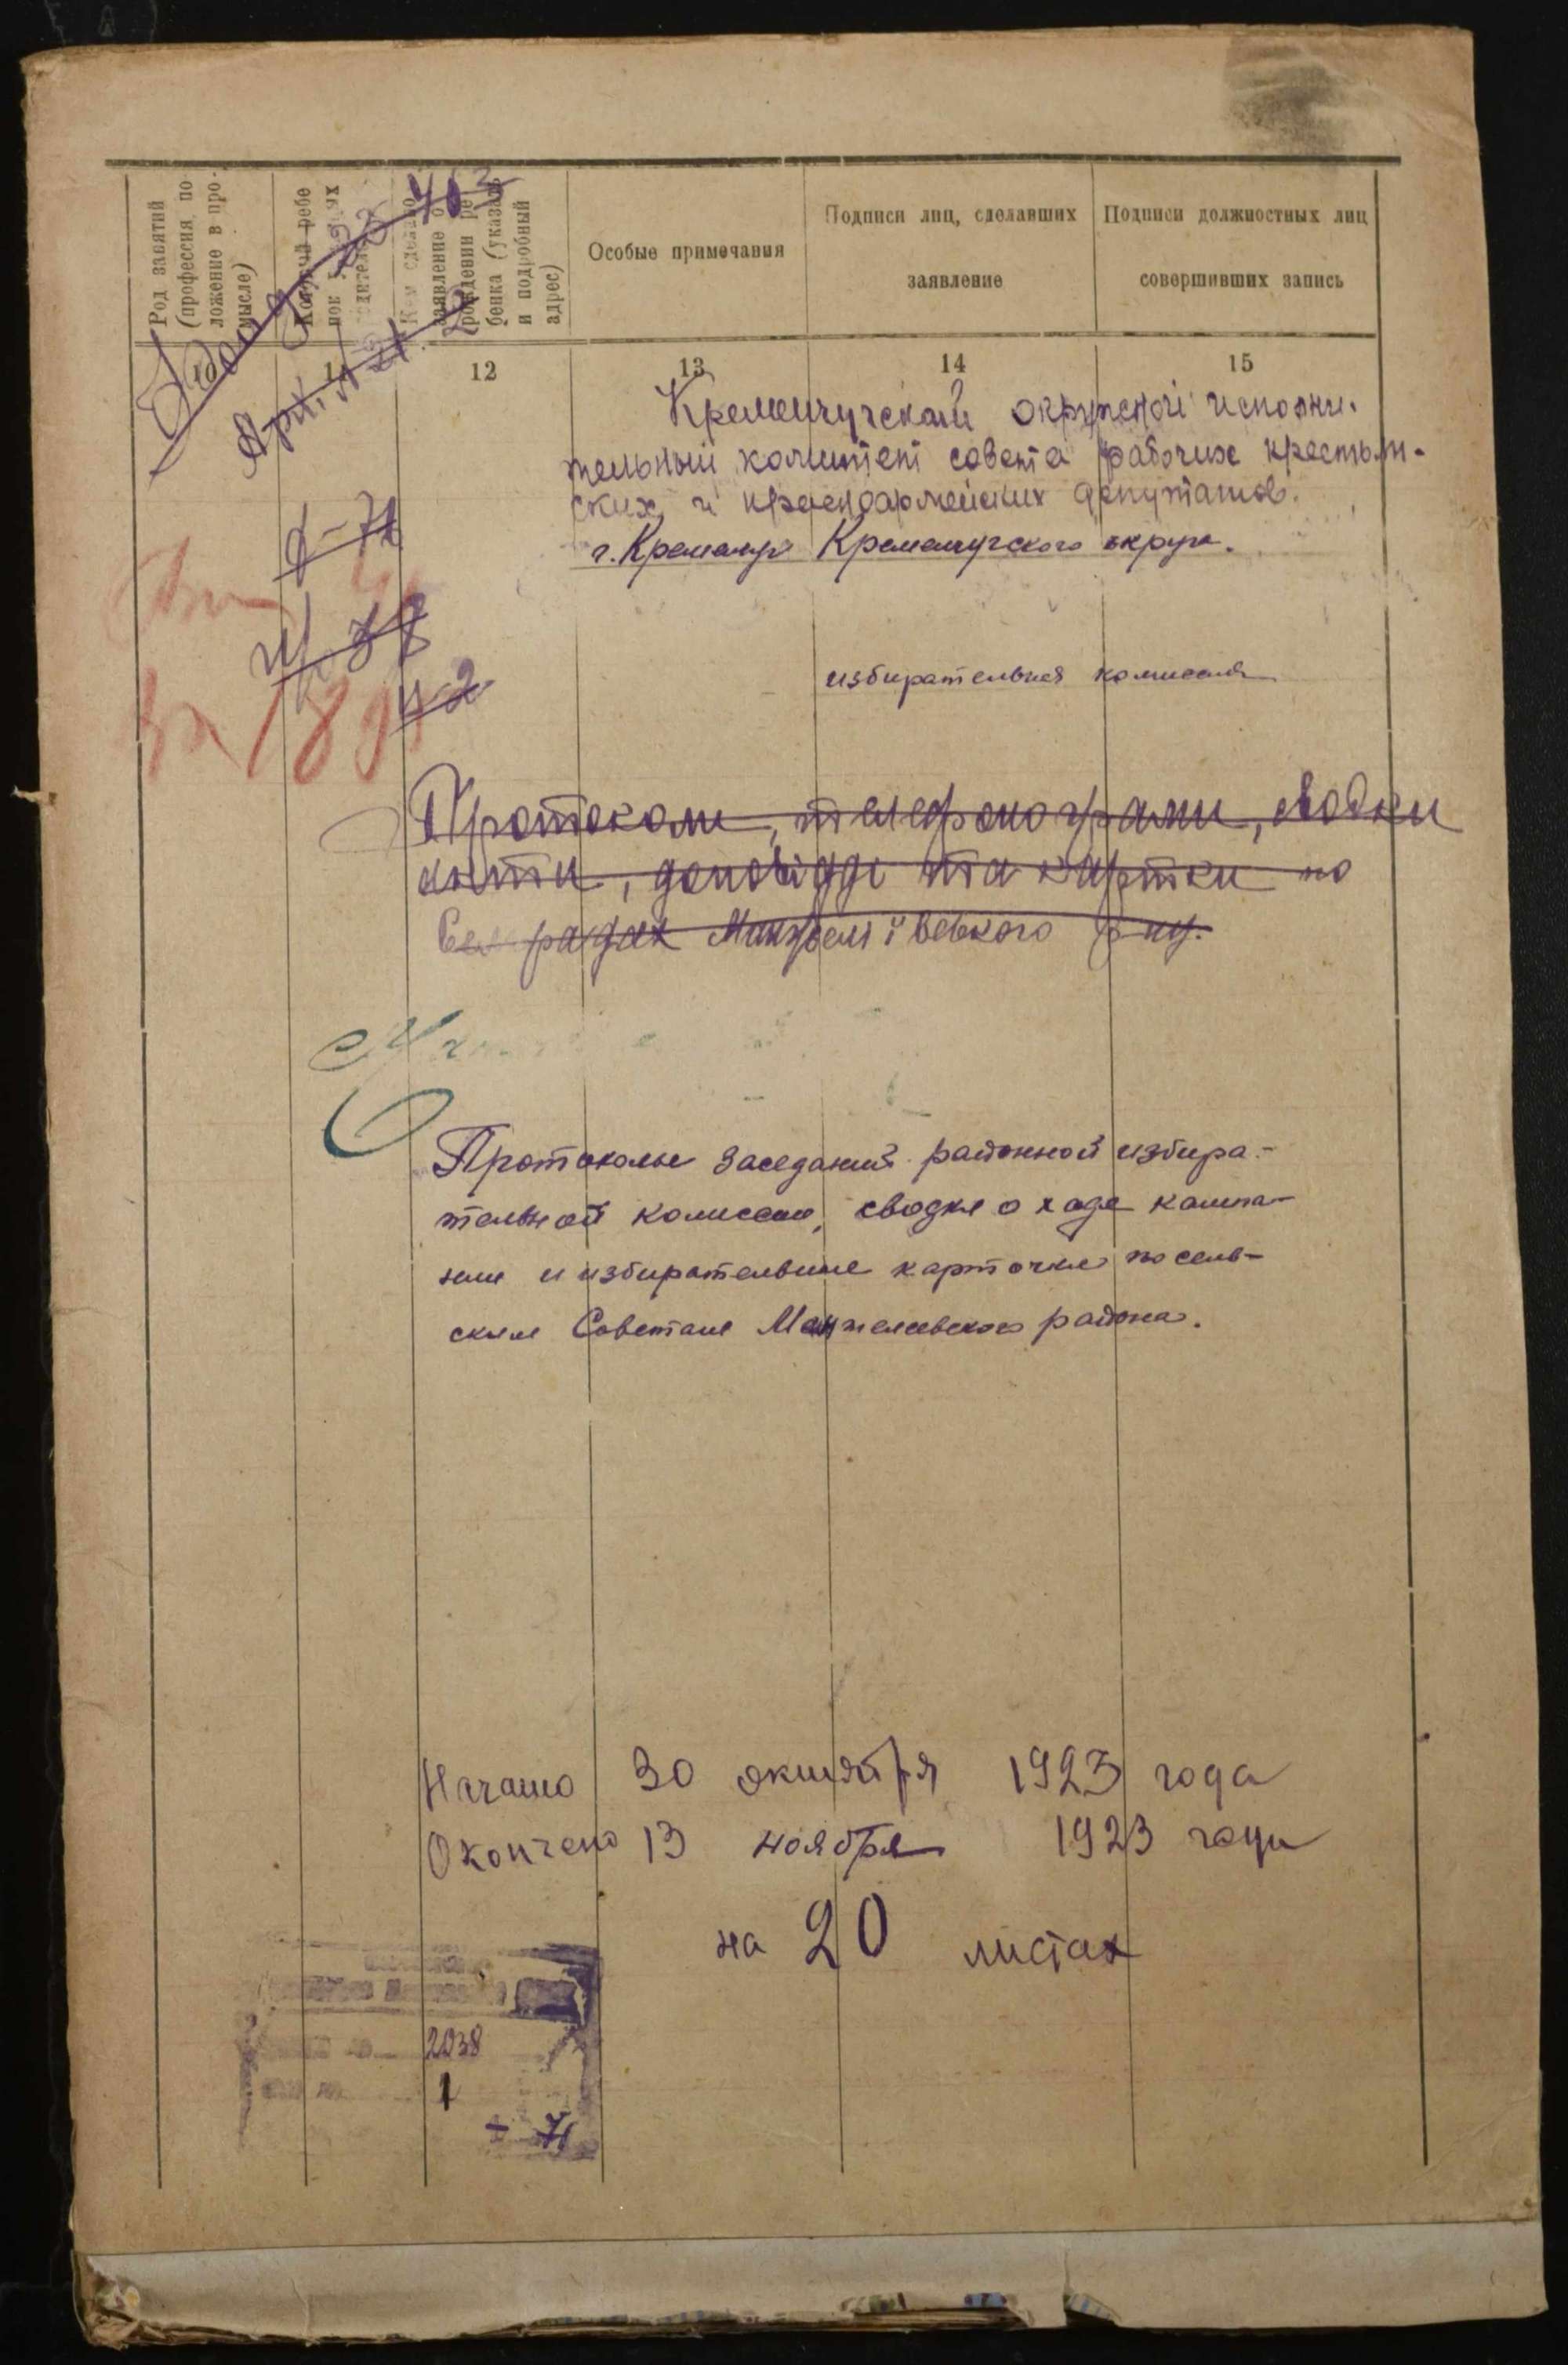 Род занятий (профессия, положение в промысле)
Который ребенок у
родителей
Кем сделано заявление о рождении ребенка (указать и подробный адрес)
Особые примечания
Подписи лиц, сделавших заявление
Подписи должностных лиц совершивших запись
12
13
14
15
Кременчугский окружной исполни-
тельный комитет совета рабочих крестьян-
ских и красноармейских депутатов.
г. Кременчуг Кременчугского округа.
ф-71
избирательная комиссия
Протоколи, телефонограми, сводки
акти, доповідді та картки по
Сел радах Манжеліївського р-ну.
Протоколы заседаний районной избира-
тельной комиссии, сводки о ходе кампа-
нии и избирательные карточки по сель-
ским Советам Манжелеевского района.
Начато 30 октября 1923 года
Окончено 13 ноября 1923 года
на 20 листах
2038
1
71